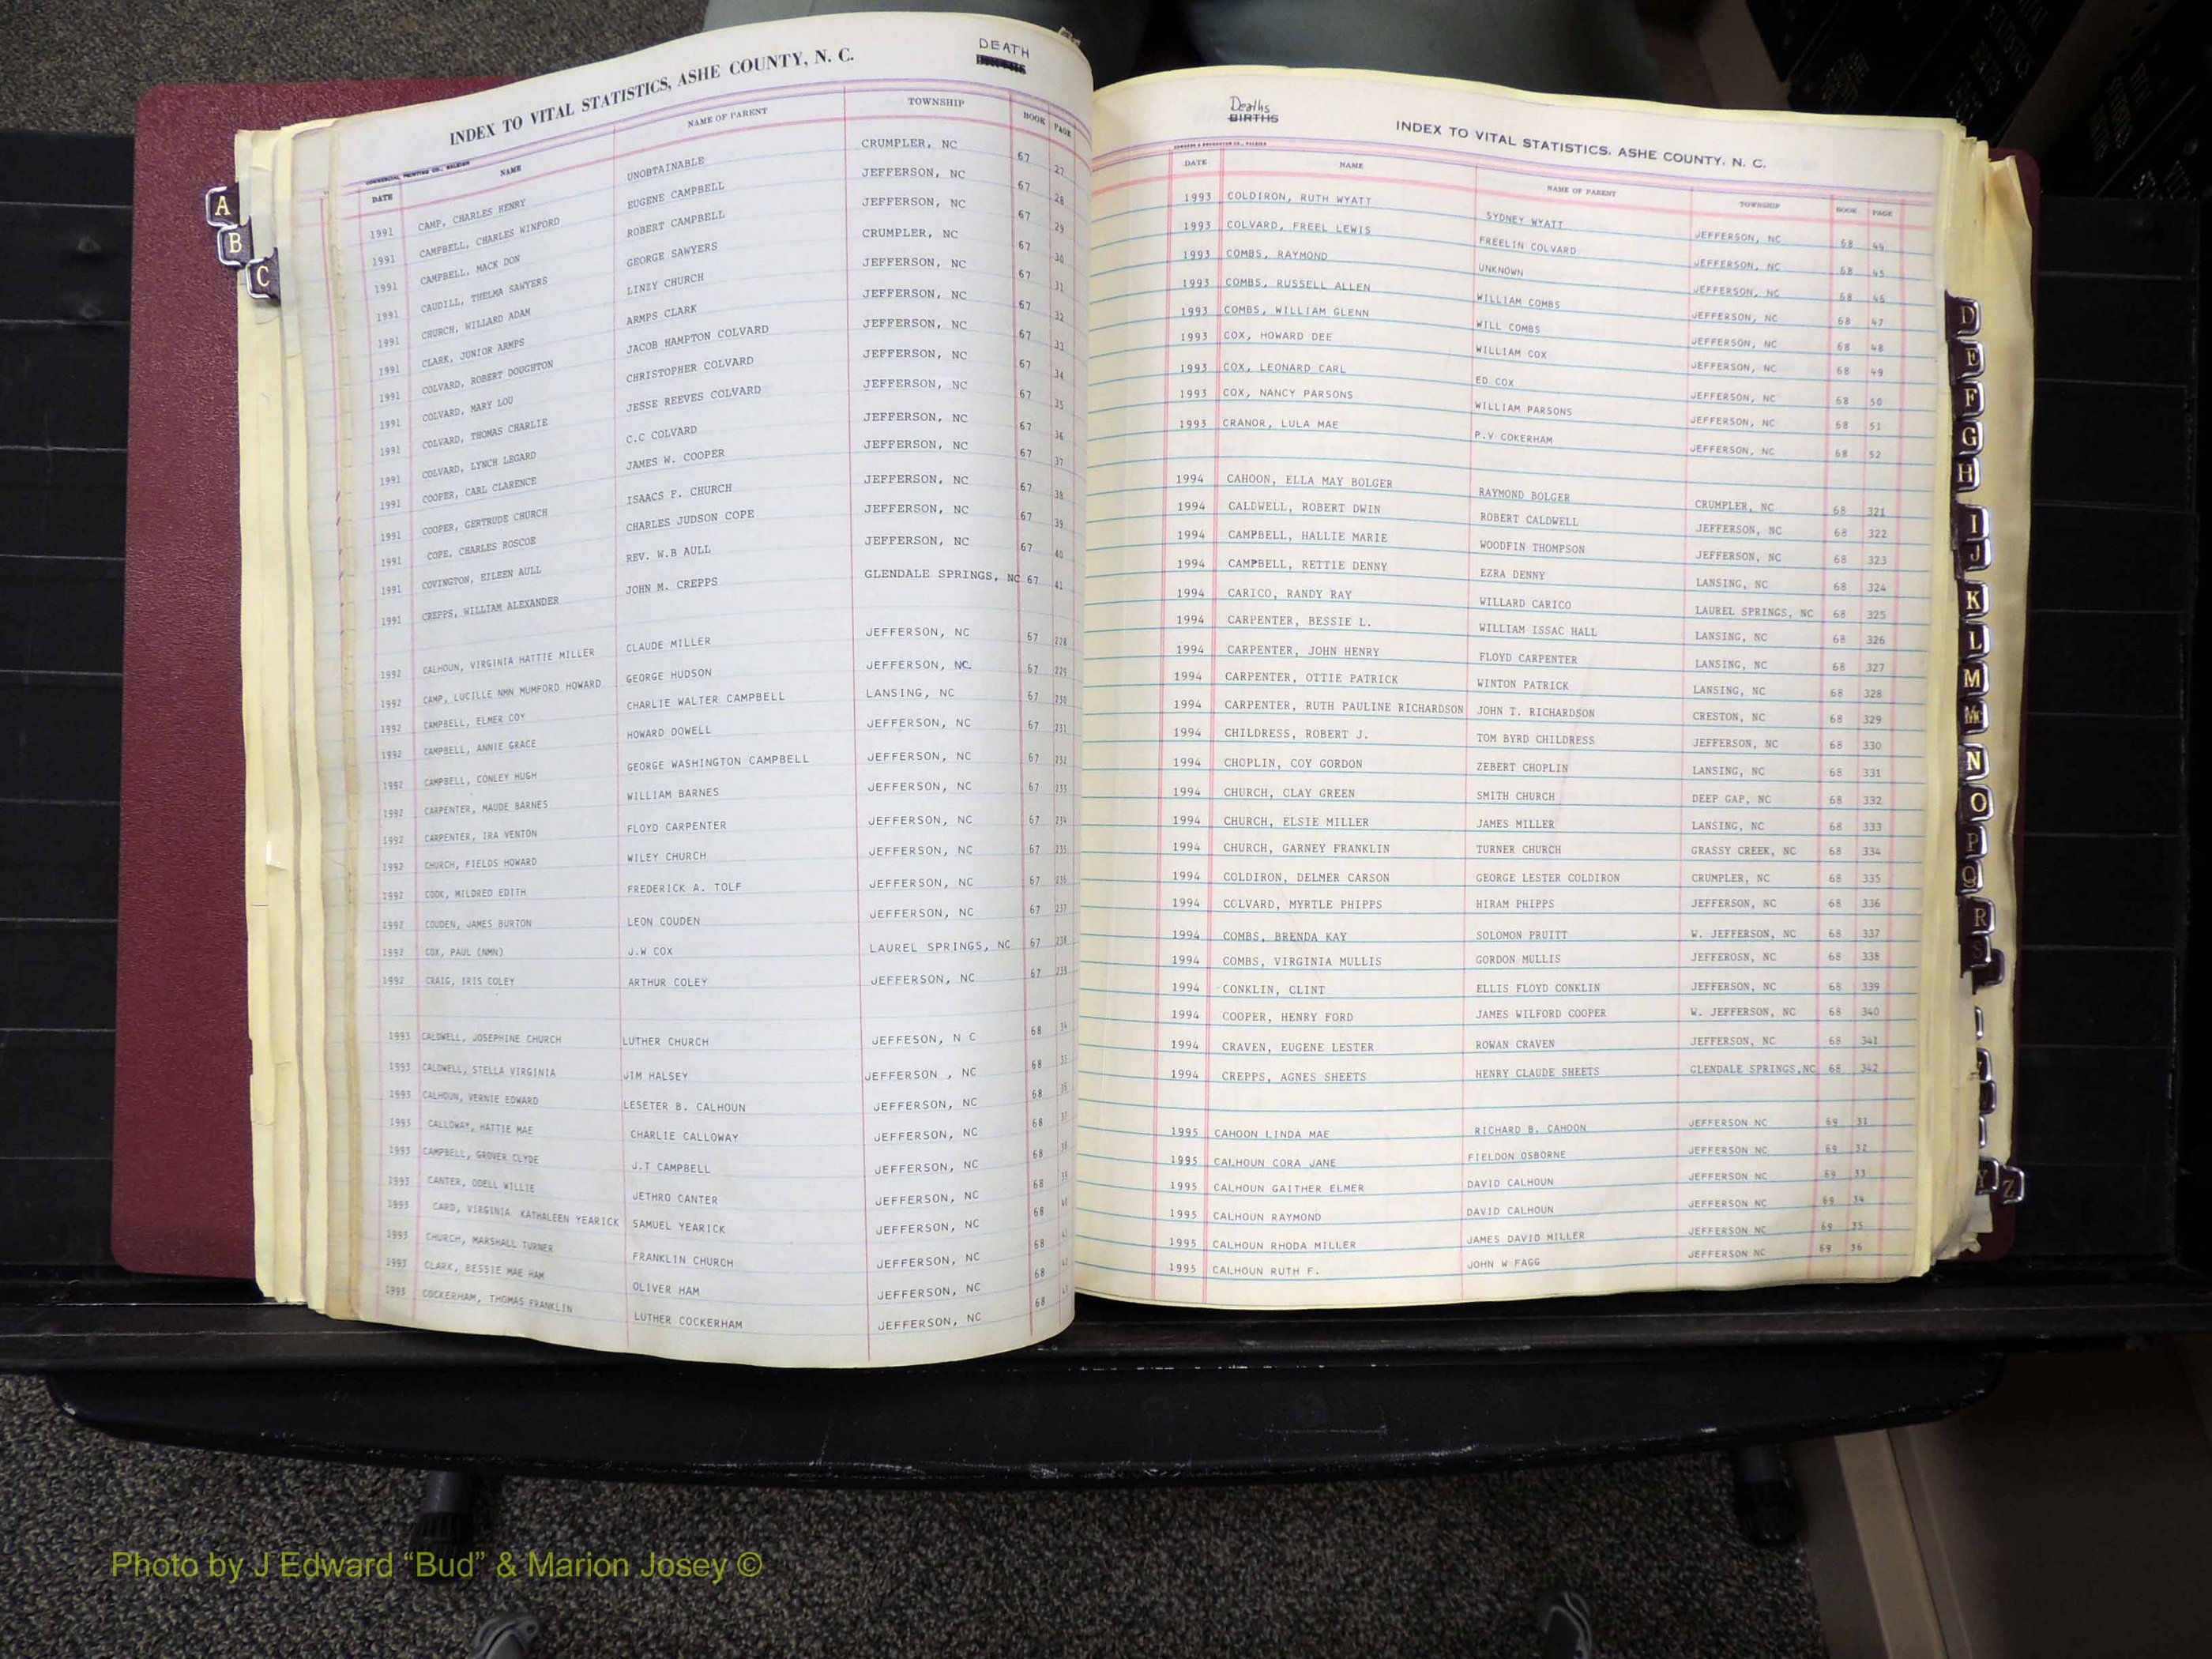 INDEX TO VITAL STATISTICS, ASHE COUNTY, N. C.
DEATH
COMMERCIAL PRINTING CO., RALEIGH
DATE NAME NAME OF PARENT TOWNSHIP BOOK PAGE
1991 CAMP, CHARLES HENRY UNOBTAINABLE CRUMPLER, NC 67 27
1991 CAMPBELL, CHARLES WINFORD EUGENE CAMPBELL JEFFERSON, NC 67 28
1991 CAMPBELL, MACK DON ROBERT CAMPBELL JEFFERSON, NC 67 29
1991 CAUDILL, THELMA SAWYERS GEORGE SAWYERS CRUMPLER, NC 67 30
1991 CHURCH, WILLARD ADAM LINZY CHURCH JEFFERSON, NC 67 31
1991 CLARK, JUNIOR ARMPS ARMPS CLARK JEFFERSON, NC 67 32
1991 COLVARD, ROBERT DOUGHTON JACOB HAMPTON COLVARD JEFFERSON, NC 67 33
1991 COLVARD, MARY LOU CHRISTOPHER COLVARD JEFFERSON, NC 67 34
1991 COLVARD, THOMAS CHARLIE JESSE REEVES COLVARD JEFFERSON, NC 67 35
1991 COLVARD, LYNCH LEGARD C.C COLVARD JEFFERSON, NC 67 36
1991 COOPER, CARL CLARENCE JAMES W. COOPER JEFFERSON, NC 67 37
1991 COOPER, GERTRUDE CHURCH ISAACS F. CHURCH JEFFERSON, NC 67 38
1991 COPE, CHARLES ROSCOE CHARLES JUDSON COPE JEFFERSON, NC 67 39
1991 COVINGTON, EILEEN AULL REV. W.B AULL JEFFERSON, NC 67 40
1991 CREPPS, WILLIAM ALEXANDER JOHN M. CREPPS GLENDALE SPRINGS, NC 67 41
1992 CALHOUN, VIRGINIA HATTIE MILLER CLAUDE MILLER JEFFERSON, NC 67 228
1992 CAMP, LUCILLE NMN MUMFORD HOWARD GEORGE HUDSON JEFFERSON, NC. 67 229
1992 CAMPBELL, ELMER COY CHARLIE WALTER CAMPBELL LANSING, NC 67 230
1992 CAMPBELL, ANNIE GRACE HOWARD DOWELL JEFFERSON, NC 67 231
1992 CAMPBELL, CONLEY HUGH GEORGE WASHINGTON CAMPBELL JEFFERSON, NC 67 232
1992 CARPENTER, MAUDE BARNES WILLIAM BARNES JEFFERSON, NC 67 233
1992 CARPENTER, IRA VENTON FLOYD CARPENTER JEFFERSON, NC 67 234
1992 CHURCH, FIELDS HOWARD WILEY CHURCH JEFFERSON, NC 67 235
1992 COOK, MILDRED EDITH FREDERICK A. TOLF JEFFERSON, NC 67 236
1992 COUDEN, JAMES BURTON LEON COUDEN JEFFERSON, NC 67 237
1992 COX, PAUL (NMN) J.W COX LAUREL SPRINGS, NC 67 238
1992 CRAIG, IRIS COLEY ARTHUR COLEY JEFFERSON, NC 67 239
1993 CALDWELL, JOSEPHINE CHURCH LUTHER CHURCH JEFFESON, N C 68 34
1993 CALDWELL, STELLA VIRGINIA JIM HALSEY JEFFERSON , NC 68 35
1993 CALHOUN, VERNIE EDWARD LESETER B. CALHOUN JEFFERSON, NC 68
1993 CALLOWAY, HATTIE MAE CHARLIE CALLOWAY JEFFERSON, NC 68 37
1993 CAMPBELL, GROVER CLYDE J.T CAMPBELL JEFFERSON, NC 68 38
1993 CANTER, ODELL WILLIE JETHRO CANTER JEFFERSON, NC 68
1993 CARD, VIRGINIA KATHALEEN YEARICK SAMUEL YEARICK JEFFERSON, NC 68
1993 CHURCH, MARSHALL TURNER FRANKLIN CHURCH JEFFERSON, NC 68
1993 CLARK, BESSIE MAE HAM OLIVER HAM JEFFERSON, NC 68
1993 COCKERHAM, THOMAS FRANKLIN LUTHER COCKERHAM JEFFERSON, NC 68
Deaths
BIRTHS
INDEX TO VITAL STATISTICS, ASHE COUNTY, N. C.
DATE NAME NAME OF PARENT TOWNSHIP BOOK PAGE
1993 COLDIRON, RUTH WYATT SYDNEY WYATT JEFFERSON, NC 68 44
1993 COLVARD, FREEL LEWIS FREELIN COLVARD JEFFERSON, NC 68 45
1993 COMBS, RAYMOND UNKNOWN JEFFERSON, NC 68 46
1993 COMBS, RUSSELL ALLEN WILLIAM COMBS JEFFERSON, NC 68 47
1993 COMBS, WILLIAM GLENN WILL COMBS JEFFERSON, NC 68 48
1993 COX, HOWARD DEE WILLIAM COX JEFFERSON, NC 68 49
1993 COX, LEONARD CARL ED COX JEFFERSON, NC 68 50
1993 COX, NANCY PARSONS WILLIAM PARSONS JEFFERSON, NC 68 51
1993 CRANOR, LULA MAE P.V COKERHAM JEFFERSON, NC 68 52
1994 CAHOON, ELLA MAY BOLGER RAYMOND BOLGER CRUMPLER, NC 68 321
1994 CALDWELL, ROBERT DWIN ROBERT CALDWELL JEFFERSON, NC 68 322
1994 CAMPBELL, HALLIE MARIE WOODFIN THOMPSON JEFFERSON, NC 68 323
1994 CAMPBELL, RETTIE DENNY EZRA DENNY LANSING, NC 68 324
1994 CARICO, RANDY RAY WILLARD CARICO LAUREL SPRINGS, NC 68 325
1994 CARPENTER, BESSIE L. WILLIAM ISSAC HALL LANSING, NC 68 326
1994 CARPENTER, JOHN HENRY FLOYD CARPENTER LANSING, NC 68 327
1994 CARPENTER, OTTIE PATRICK WINTON PATRICK LANSING, NC 68 328
1994 CARPENTER, RUTH PAULINE RICHARDSON JOHN T. RICHARDSON CRESTON, NC 68 329
1994 CHILDRESS, ROBERT J. TOM BYRD CHILDRESS JEFFERSON, NC 68 330
1994 CHOPLIN, COY GORDON ZEBERT CHOPLIN LANSING, NC 68 331
1994 CHURCH, CLAY GREEN SMITH CHURCH DEEP GAP, NC 68 332
1994 CHURCH, ELSIE MILLER JAMES MILLER LANSING, NC 68 333
1994 CHURCH, GARNEY FRANKLIN TURNER CHURCH GRASSY CREEK, NC 68 334
1994 COLDIRON, DELMER CARSON GEORGE LESTER COLDIRON CRUMPLER, NC 68 335
1994 COLVARD, MYRTLE PHIPPS HIRAM PHIPPS JEFFERSON, NC 68 336
1994 COMBS, BRENDA KAY SOLOMON PRUITT W. JEFFERSON, NC 68 337
1994 COMBS, VIRGINIA MULLIS GORDON MULLIS JEFFEROSN, NC 68 338
1994 CONKLIN, CLINT ELLIS FLOYD CONKLIN JEFFERSON, NC 68 339
1994 COOPER, HENRY FORD JAMES WILFORD COOPER W. JEFFERSON, NC 68 340
1994 CRAVEN, EUGENE LESTER ROWAN CRAVEN JEFFERSON, NC 68 341
1994 CREPPS, AGNES SHEETS HENRY CLAUDE SHEETS GLENDALE SPRINGS,NC 68 342
1995 CAHOON LINDA MAE RICHARD B. CAHOON JEFFERSON NC 69 31
1995 CALHOUN CORA JANE FIELDON OSBORNE JEFFERSON NC 69 32
1995 CALHOUN GAITHER ELMER DAVID CALHOUN JEFFERSON NC 69 33
1995 CALHOUN RAYMOND DAVID CALHOUN JEFFERSON NC 69 34
1995 CALHOUN RHODA MILLER JAMES DAVID MILLER JEFFERSON NC 69 35
1995 CALHOUN RUTH F. JOHN W FAGG JEFFERSON NC 69 36
A
B
C
D
E
F
G
H
I
J
K
L
M
Mc
N
O
P
Q
R
S
Y
Z
Photo by J Edward “Bud” & Marion Josey ©